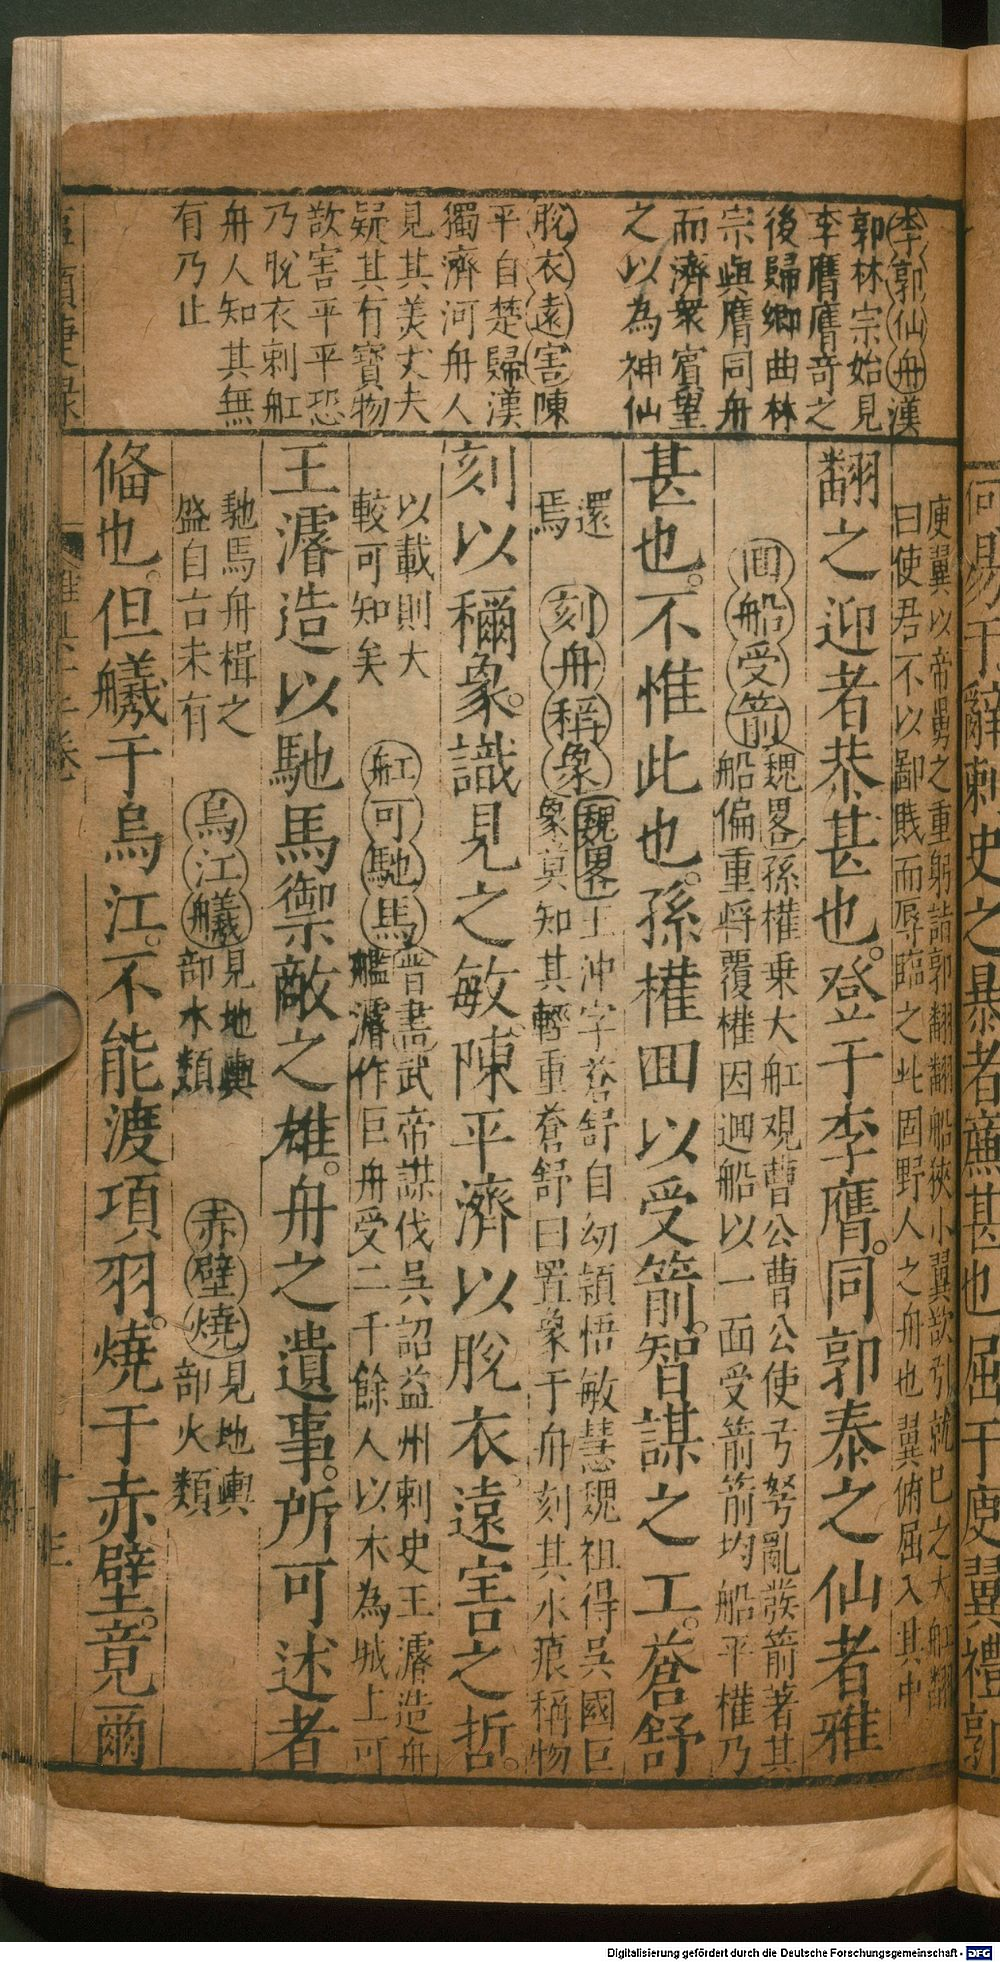 李郭仙舟漢
郭林宗始見
李膺膺奇之
後歸鄉曲林
宗與膺同舟
而濟衆賓望
之以為神仙
脫衣遠害陳
平自楚歸漢
獨濟河舟人
見其美丈夫
疑其有寳物
欲害平平恐
乃脫衣刺舡
舟人知其無
有乃止
何易于辭刺史之暴者蔗甚也屈于庾翼禮郭
庾翼以帝舅之重躬詣郭翻翻船狹小翼欲引就巳之大舡翻
曰使君不以鄙賤而辱臨之此固野人之舟也翼俯屈入其中
翻之迎者恭甚也。登于李膺。同郭泰之仙者雅
囬船受箭 魏畧孫權乗大舡觀曹公曹公使弓弩亂發箭著其
船偏重将覆權因廻船以一面受箭箭均船平權乃
甚也。不惟此也。孫權囬以受箭。智謀之工。蒼舒
還
焉
刻舟稱象 魏畧王沖字蒼舒自幼頴悟敏慧魏祖得吳國巨
象莫知其輕重蒼舒曰置象于舟刻其水痕稱物
刻以稱象。識見之敏。陳平濟以脫衣。遠害之哲。
以載則大
較可知矣
舡可馳馬 晉書武帝謀伐吳詔益州刺史王濬造舟
艦濬作巨舟受二千餘人以木為城上可
王濬造以馳馬禦敵之雄。舟之遺事。所可述者
馳馬舟楫之
盛自古未有
烏江艤 見地輿
部水類
赤壁燒 見地輿
部火類
俻也。但艤于烏江。不能渡項羽。燒于赤壁。竟爾
十三
Digitalisierung gefördert durch die Deutsche Forschungsgemeinschaft - DFG